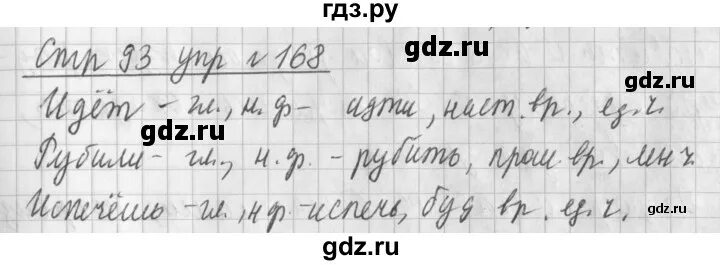 гдз.ру
Стр 93 упр № 168
gdz.ru
gdz.ru
Идёт - гл., н.ф - идти, наст. вр., ед.ч.
gdz.ru
gdz.ru
Рубили - гл., н.ф. - рубить, прош вр., мн ч.
Испечёшь - гл., н ф - испечь, буд вр. ед. ч.
gdz.ru
gdz.ru
gdz.ru